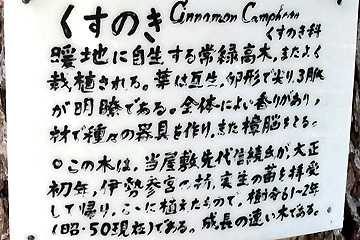 くすのき Cinnamon Camphora
くすのき科
暖地に自生する常緑高木、またよく
栽植される。葉は互生、卵形で尖り3脈
が明瞭である。全体によい香りがあり、
材で種々の器具を作り、また樟脳をとる。
○この木は、当屋敷先代信績氏が、大正
初年、伊勢参宮の折、実生の苗を拝受
して帰り、ここに植えたもので、樹令61~2年
(昭・50現在)である。成長の速い木である。